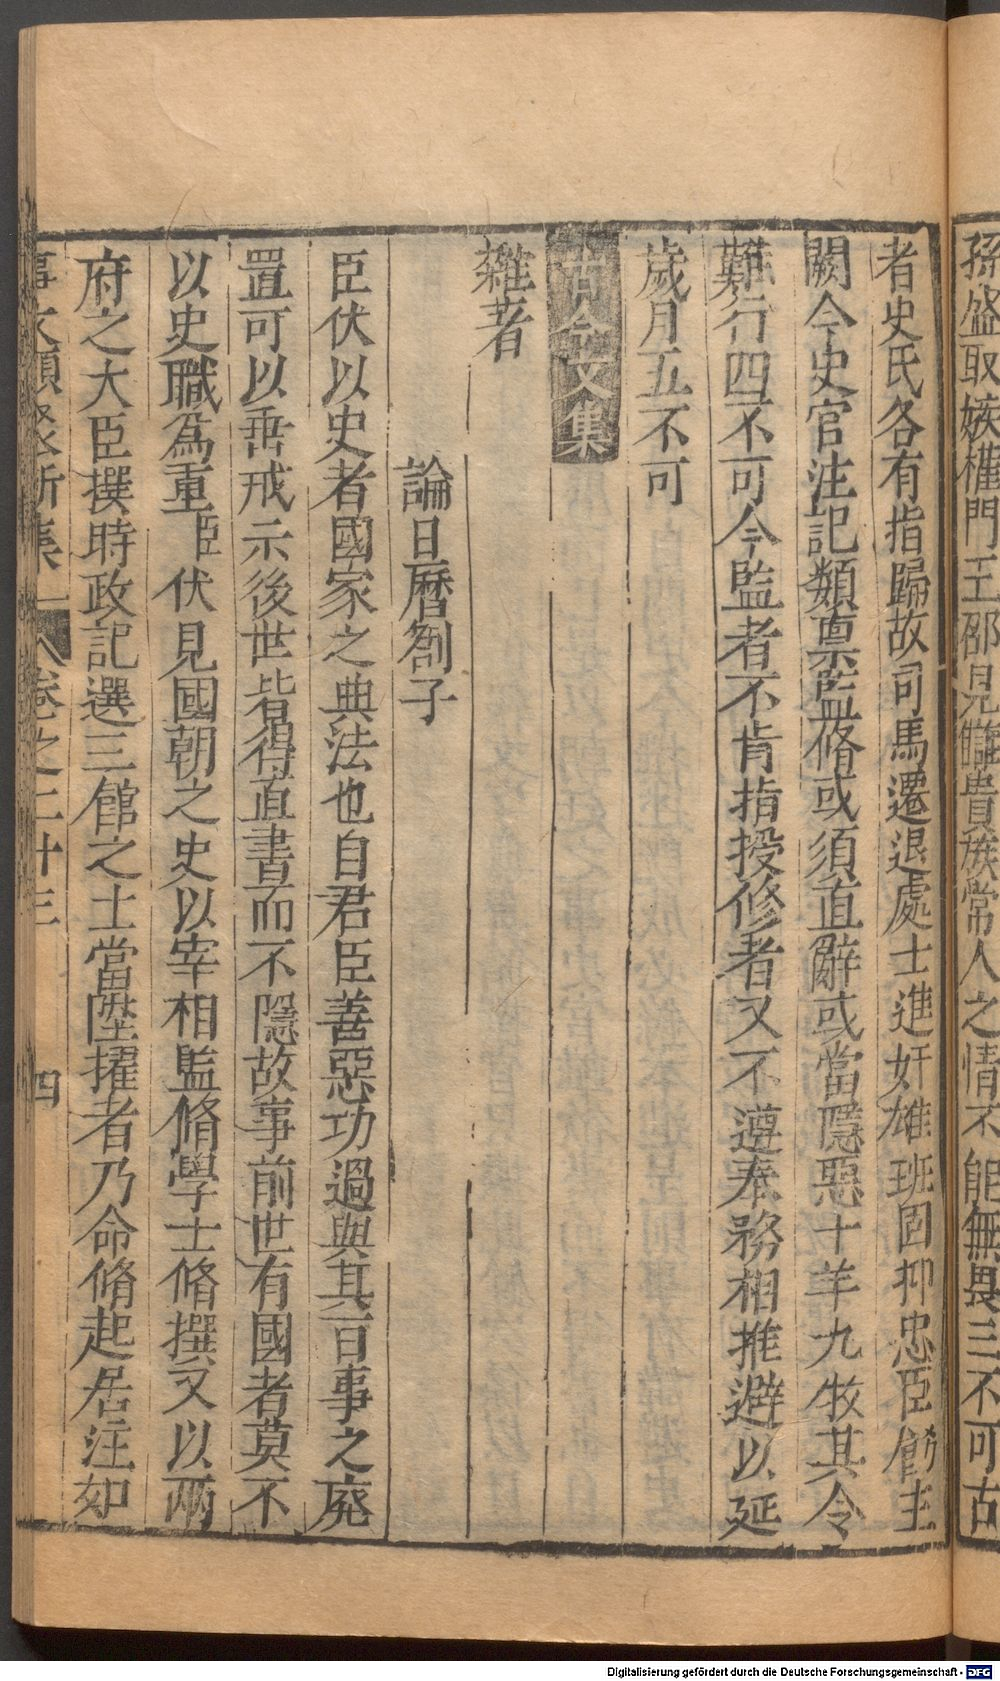 孫盛取嫉權門王邵見讎貴族常人之情不能無畏三不可古
者史氏各有指歸故司馬遷退處士進奸雄班固抑忠臣飾主
闕今史官注記類禀監脩或須直辭或當隱惡十羊九牧其令
難行四不可今監者不肯指授修者又不遵奉務相推避以延
歲月五不可
古今文集
雜者
論日曆劄子
臣伏以史者國家之典法也自君臣善惡功過與其百事之廢
置可以垂戒示後世皆得直書而不隱故事前世有國者莫不
以史職爲重臣伏見國朝之史以宰相監脩學士脩撰又以兩
府之大臣撰時政記選三館之士當陞擢者乃命脩起居注如
事文類聚新集 卷之二十三 四
Digitalisierung gefördert durch die Deutsche Forschungsgemeinschaft - DFG